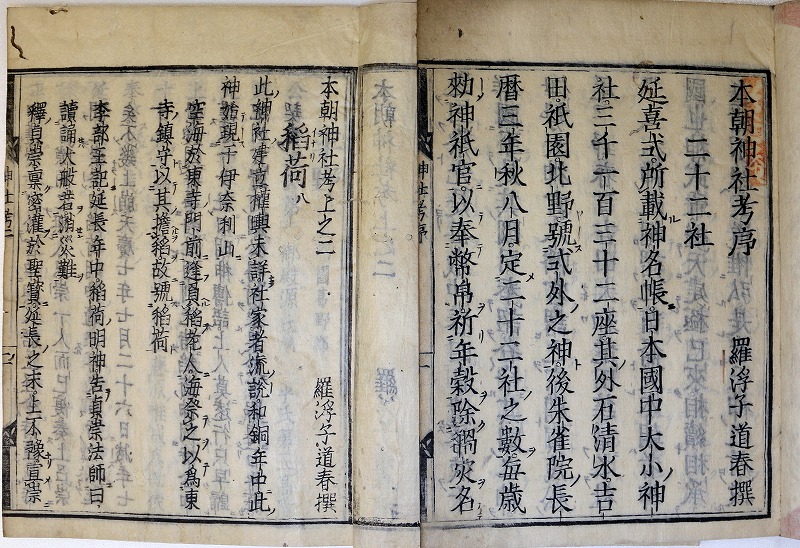 本朝神社考序　　羅浮子道春撰
二十二社
延喜式所載神名帳ニ曰本國中大小神
社三千一百三十二座其外石清水吉
田祇園北野號式外之神後朱雀院長
暦三年秋八月定二十二社之數毎歳
勅神祇官以奉幣帛祈年穀除濁災名
神社考序
本朝神社考上之二
羅浮子道春撰
稲荷八
此神社建立權輿未詳社家者流説和銅年中此
神始現于伊奈利山
空海於東寺門前逢負稲老人海祭之以為東
寺鎮守以其擔稲故號稲荷
李部王記延長年中稲荷明神告貞崇法師曰
讀誦大般若消災難
釋貞崇稟密灌於聖寳延長之末上不豫貞崇
神社考二